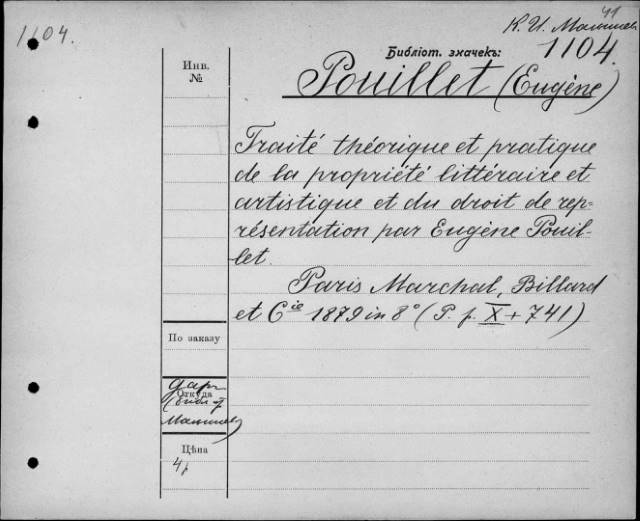 1104.
41
К. И. Малышев
Библіот. значекъ:
1104.
Инв.
№
Pouillet (Eugène)
Traité théorique et pratique
de la propriété littéraire et
artistique et du droit de rep-
résentation par Eugène Pouil-
let.
Paris Marchal, Billard
et Cie 1879 in 8° (P. p. X + 741)
По заказу
Откуда
даръ
Малышев
Цѣна
4р